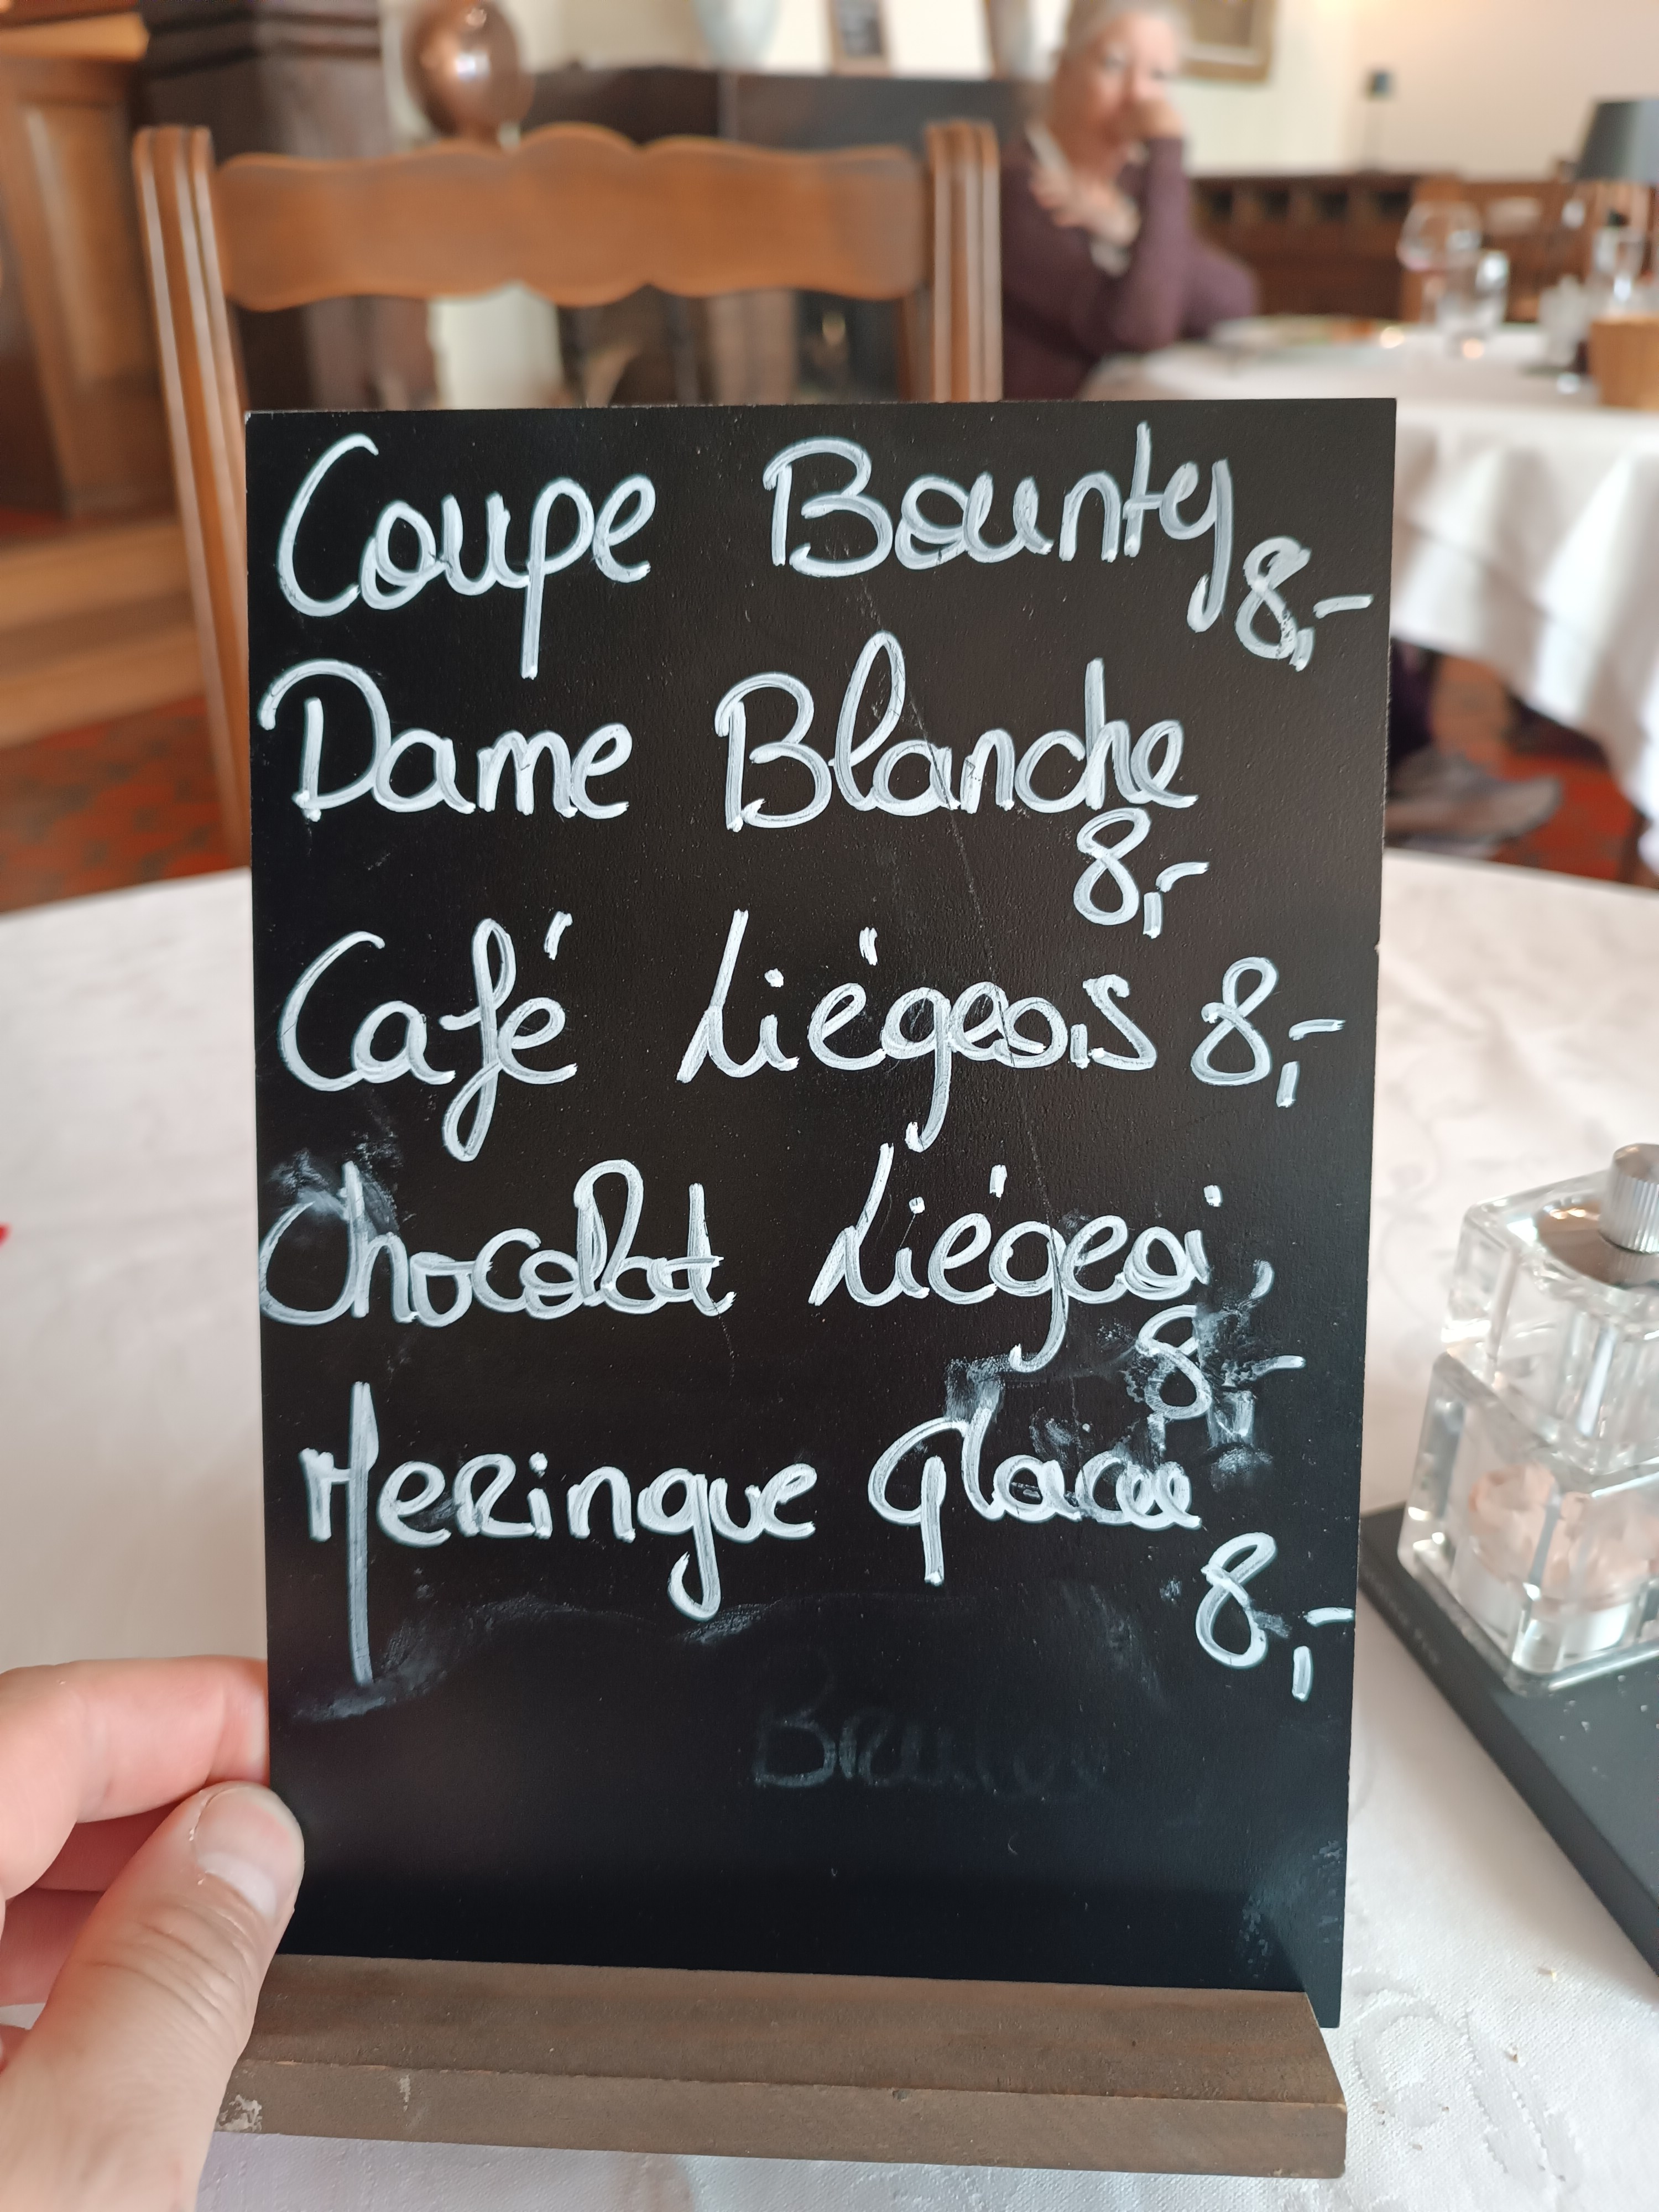 Coupe Bounty 8,-
Dame Blanche
8,-
Café Liégeois 8,-
Chocolat Liégeois
8,-
Meringue Glacée
8,-